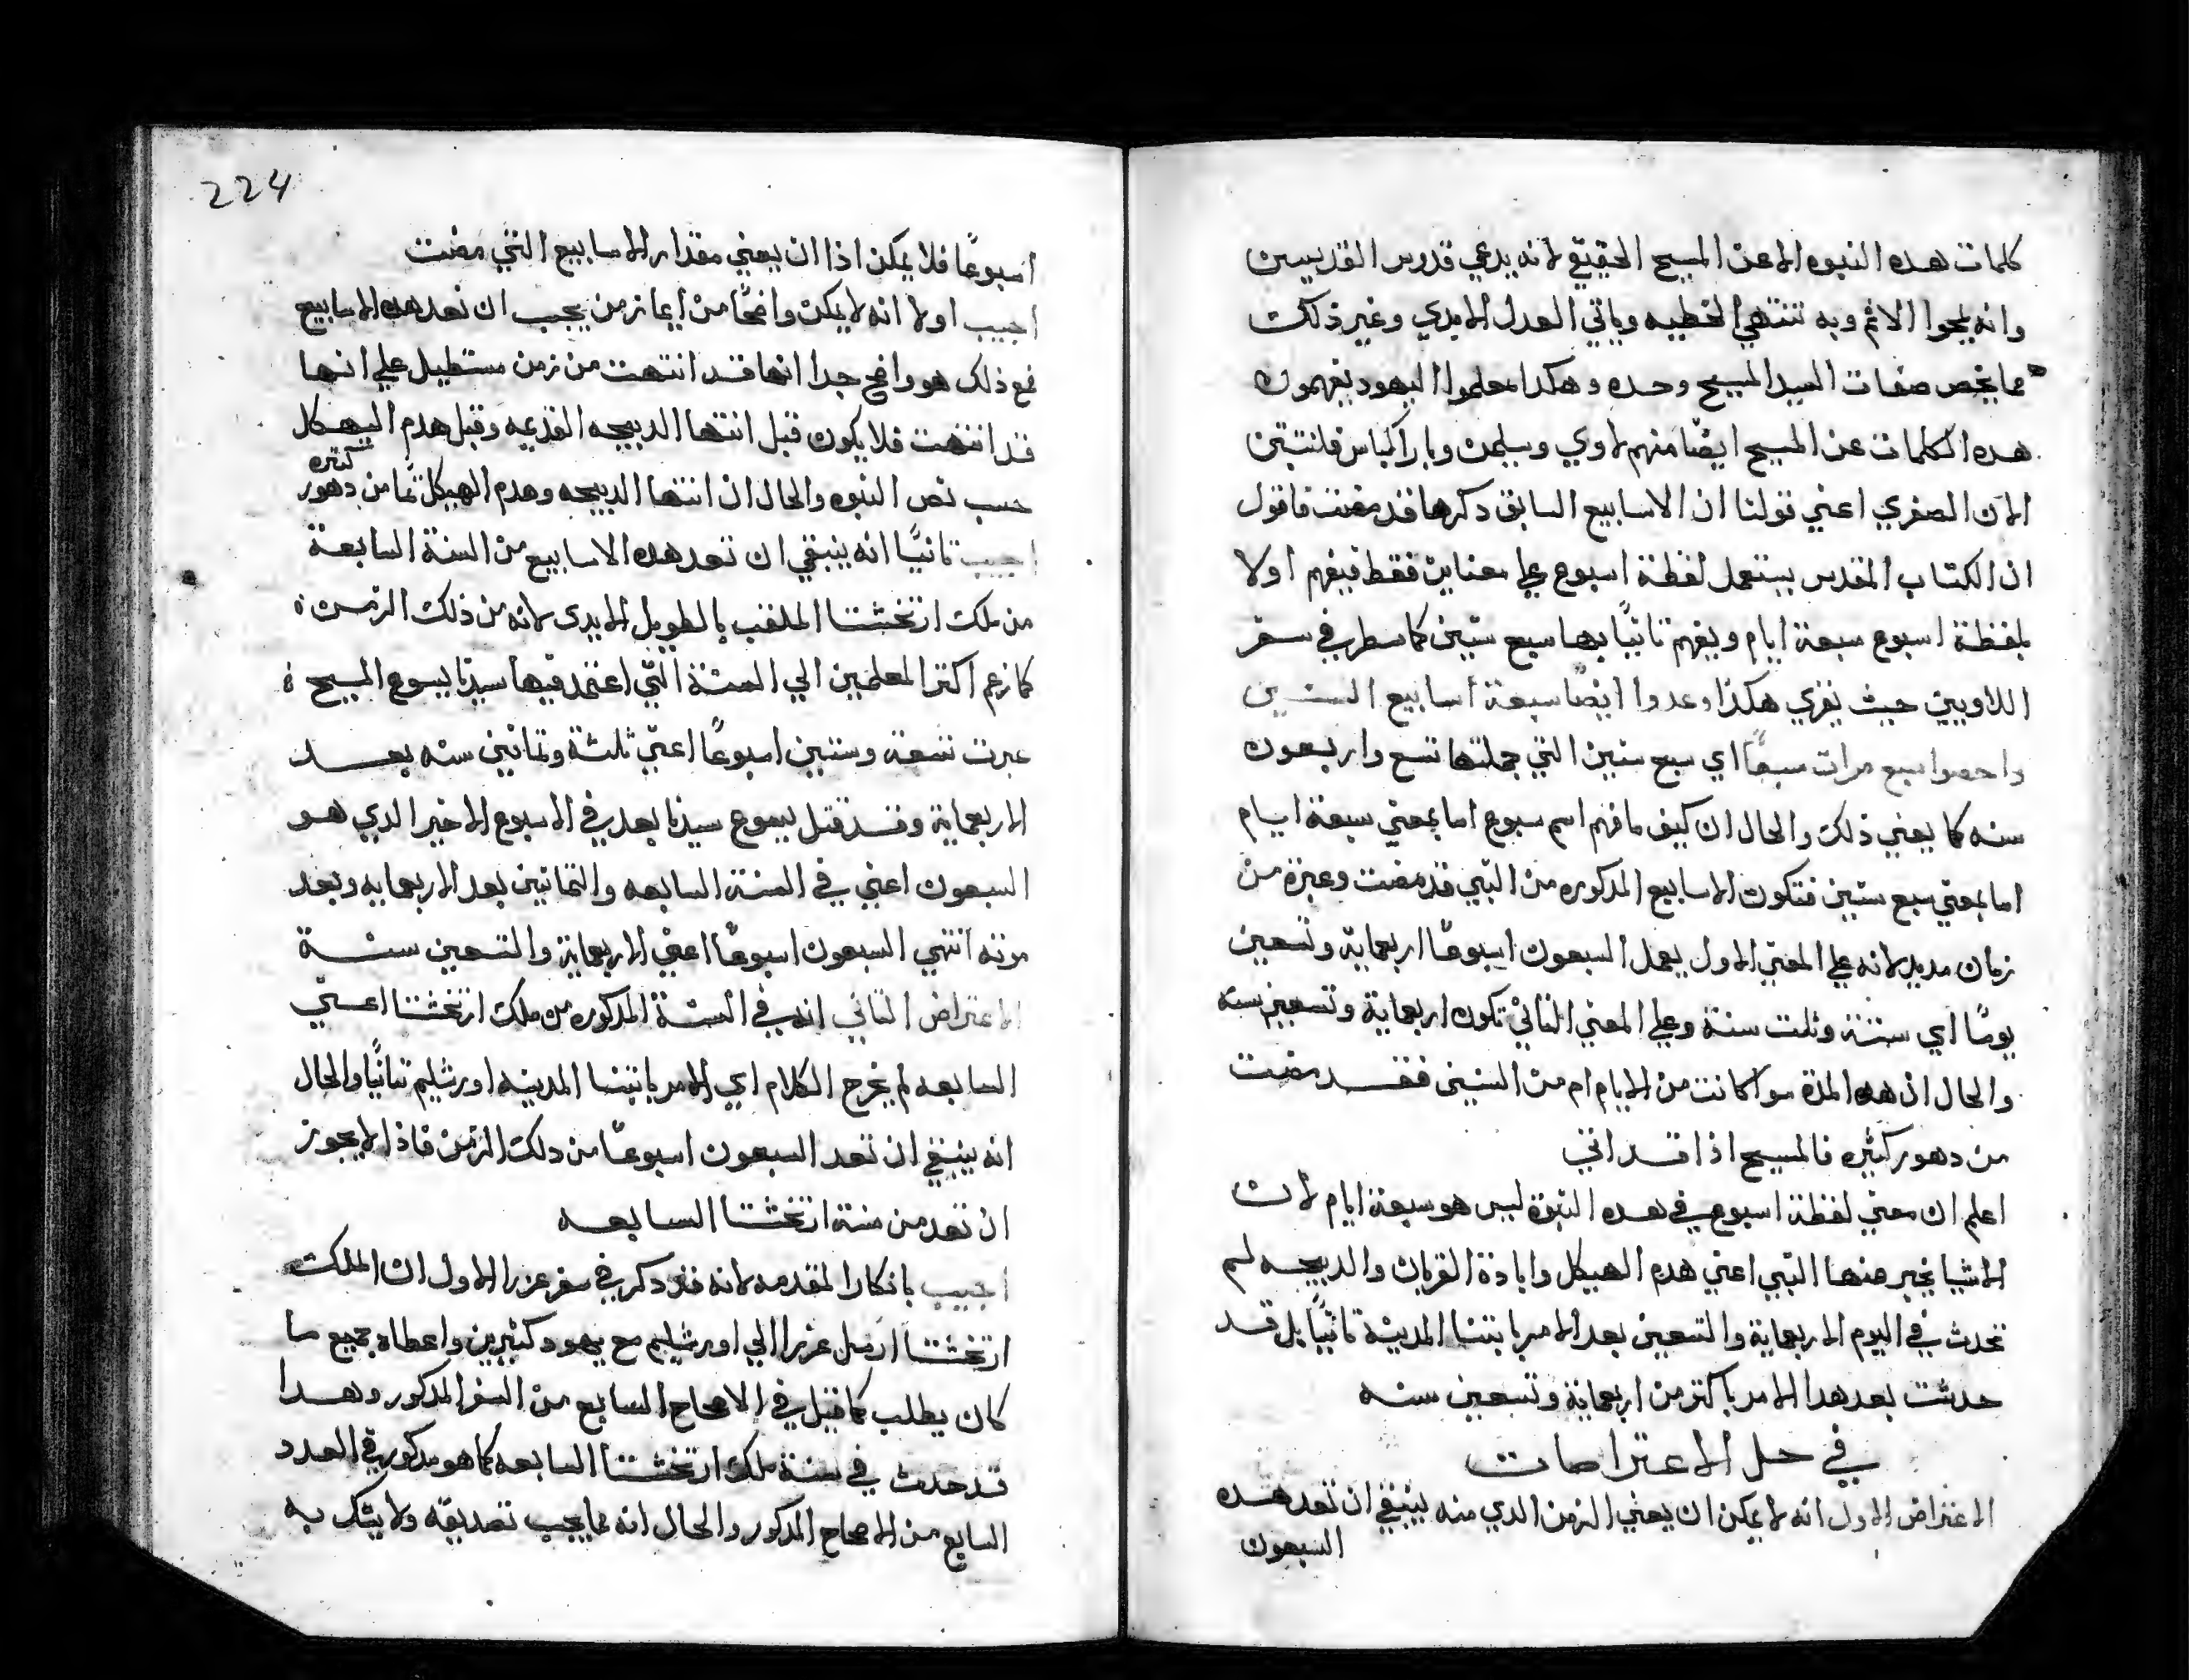 كلمات هده النبوه الا عن المسيح الحقيقي لانه يدعي قدوس القديسين
وانه يمحوا الاثم وبه تنتهي الخطيه وياتي العدل الابدي وغير ذلك
مما يخص صفات السيد المسيح وحده وهكدا معلموا اليهود يفهمون
هده الكلمات عن المسيح ايضًا منهم لاوي وسليمن وباراكياس فلنتبتن
الان الصغري اعني قولنا ان الاسابيع السابق دكرها قد مضت فاقول
ان الكتاب المقدس يستعمل لفظة اسبوع علي معنايين فقط فيفهم اولا
بلفظة اسبوع سبعة ايام ويفهم تانيًا بها سبع سنين كما سطر في سفر
اللاويين حيث يقري هكذا وعدوا ايضًا سبعة اسابيع السنين
واحصوا سبع مرات سبعًا اي سبع سنين التي جملتها تسع واربعون
سنه كما يعني ذلك والحال ان كيف ما فهم اسم سبوع اما بمعني سبعة ايام
اما بمعني سبع سنين فتكون الاسابيع المدكوره من التي قد مضت وعبرة من
زمان مديد لانه علي المعني الاول يعمل السبعون اسبوعًا اربعماية وتسعين
يومًا اي سنة وثلت سنة وعلي المعني الثاني تكون اربعماية وتسعين سنه
والحال ان هده المدة سوا كانت من الايام ام من السنين فقد مضت
من دهور كثيره فالمسيح اذا قد اتي
اعلم ان معني لفظة اسبوع في هده النبوة ليس هو سبعة ايام لان
الاشيا يخبر عنها النبي اعني هدم الهيكل وابادة القربان والدبيحه لم
تحدث في اليوم الاربعماية والتسعين بعد الامر بابتنا المدينة تانيًا بل قد
حدثت بعد هدا الامر باكتر من اربعماية وتسعين سنه
في حل الاعتراضات
الاعتراض الاول انه لا يمكن ان يعني الزمن الدي منه ينبغي ان تعد هده
السبعون
224
اسبوعًا فلا يمكن اذا ان يعني مقدار الاسابيع التي مضت
اجيب اولا انه لا يمكن واضحًا من ايما زمن يجب ان تعد هده الاسابيع
فمع ذلك هو واضح جدا انها قد انتهت من زمن مستطيل علي انها
قد انتهت فلا يكون قبل انتها الدبيحه القديمه وقبل هدم الهيكل
حسب نص النبوه والحال ان انتها الدبيحه وهدم الهيكل تما من دهور كتيره
اجيب تانيًا انه ينبغي ان تعد هده الاسابيع من السنة السابعة
من ملك ارتخشتا الملقب بالطويل الايدى لانه من ذلك الزمن
كما زعم اكتر المعلمين الي السنة التي اعتمد فيها سيدنا يسوع المسيح
عبرت تسعة وستين اسبوعًا اعني ثلثة وتمانين سنه بعد
الاربعماية وقد قتل يسوع سيدنا بعد في الاسبوع الاخير الدي هو
السبعون اعني في السنة السابعه والتمانين بعد الاربعمايه وبعد
موته انتهي السبعون اسبوعًا اعني الاربعماية والتسعين سنة
الاعتراض التاني انه في السنة المدكوره من ملك ارتخشتا اعني
السابعه لم يخرج الكلام اي الامر بابتنا المدينه اورشليم تانيًا والحال
انه ينبغي ان تعد السبعون اسبوعًا من دلك الزمن فاذا لا يجوز
ان تعد من سنة ارتخشتا السابعه
اجيب بانكار المقدمه لانه قد دكر في سفر عزرا الاول ان الملك
ارتخشتا ارسل عزرا الي اورشليم مع يهود كثيرين واعطاه جميع ما
كان يطلب كما قيل في الاصحاح السابع من السفر المدكور وهدا
قد حدث في سنة ملك ارتخشتا السابعه كما هو مدكور في العدد
السابع من الاصحاح المدكور والحال انه مما يجب تصديقه ولا يشك به